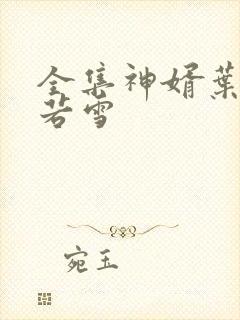 全集神婿葉
若雪
宛玉